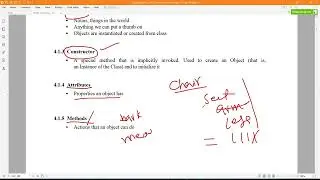 Nouns, things in the world
Anything we can put a thumb on
Objects are instantiated or created from class
4.1.3 Constructor
A special method that is implicitly invoked. Used to create an Object (that is,
an Instance of the Class) and to initialize it
4.1.4 Attributes
Properties an object has
4.1.5 Methods
Actions that an object can do
Chair
Seat
arm
legs
bark